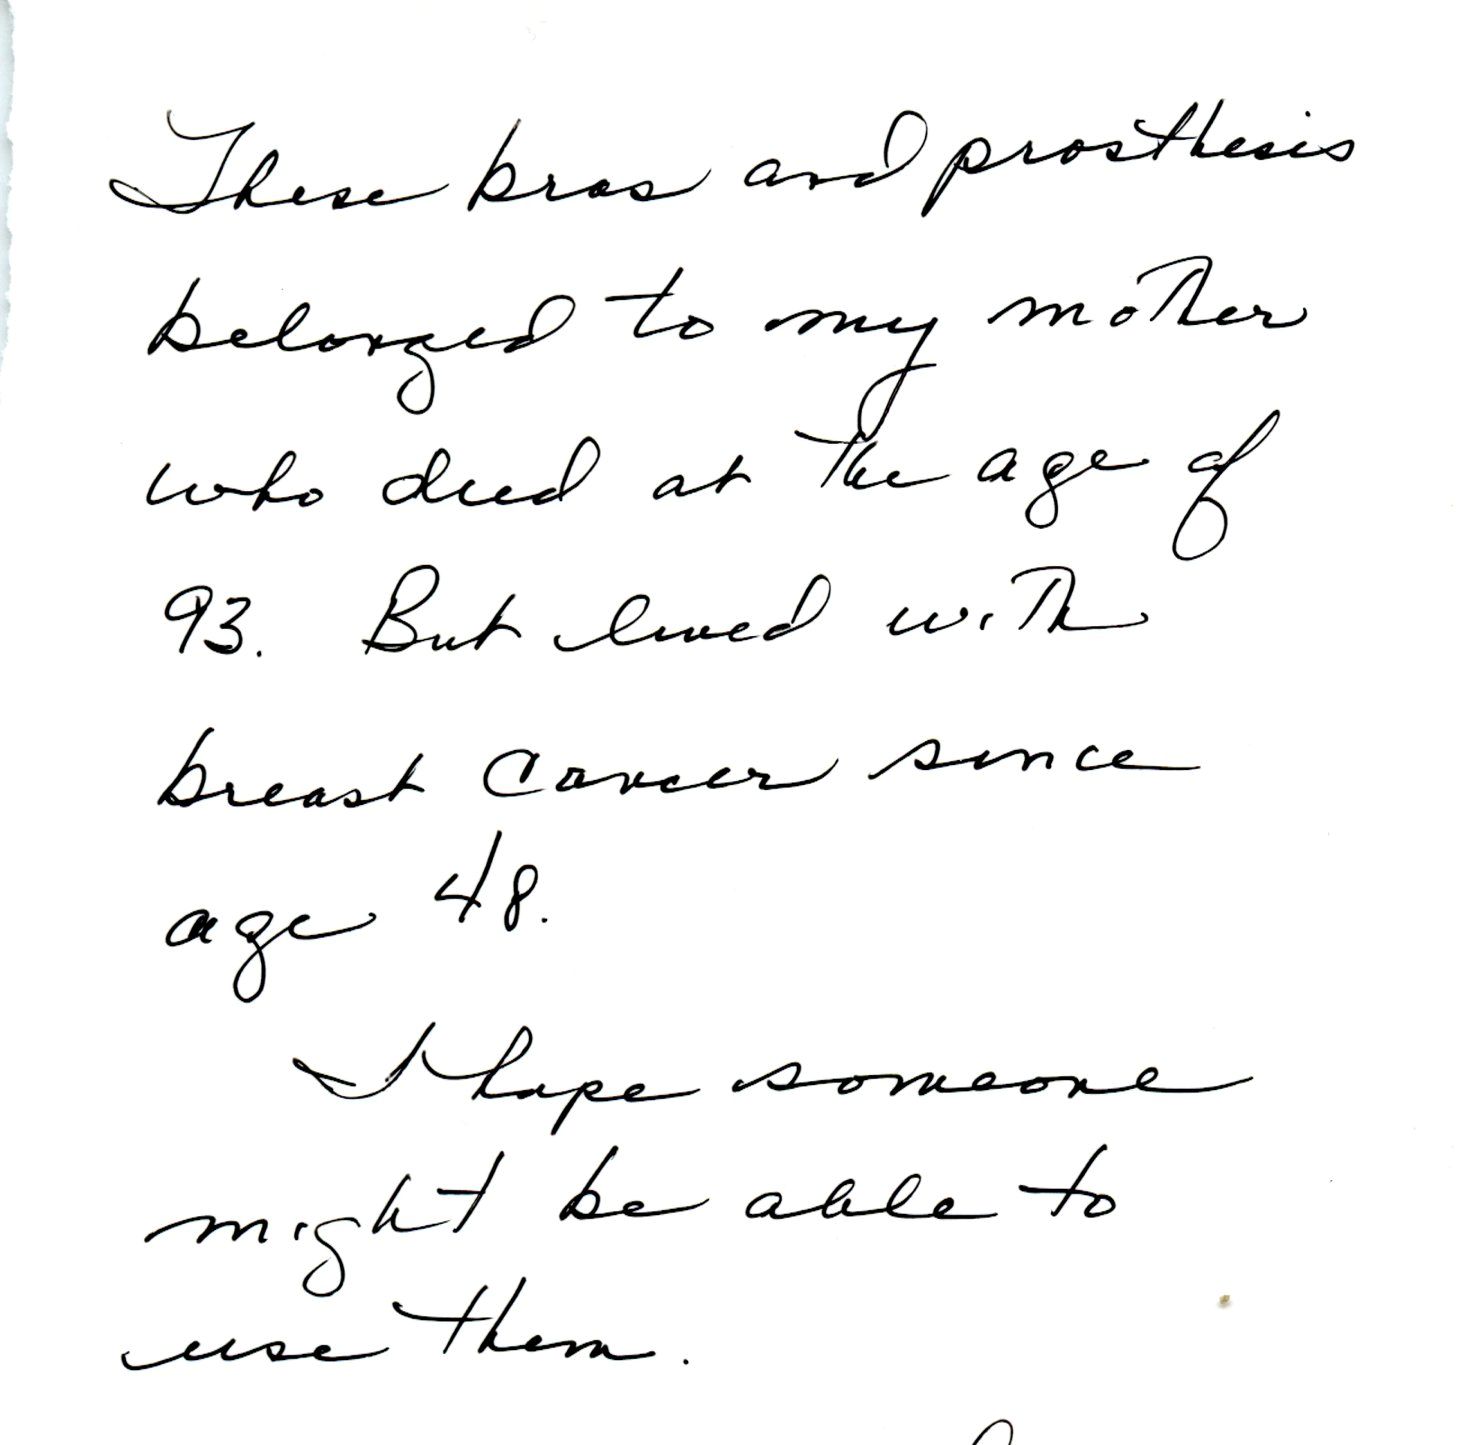 These bras and prosthesis
belonged to my mother
who died at the age of
93. But lived with
breast cancer since
age 48.
I hope someone
might be able to
use them.